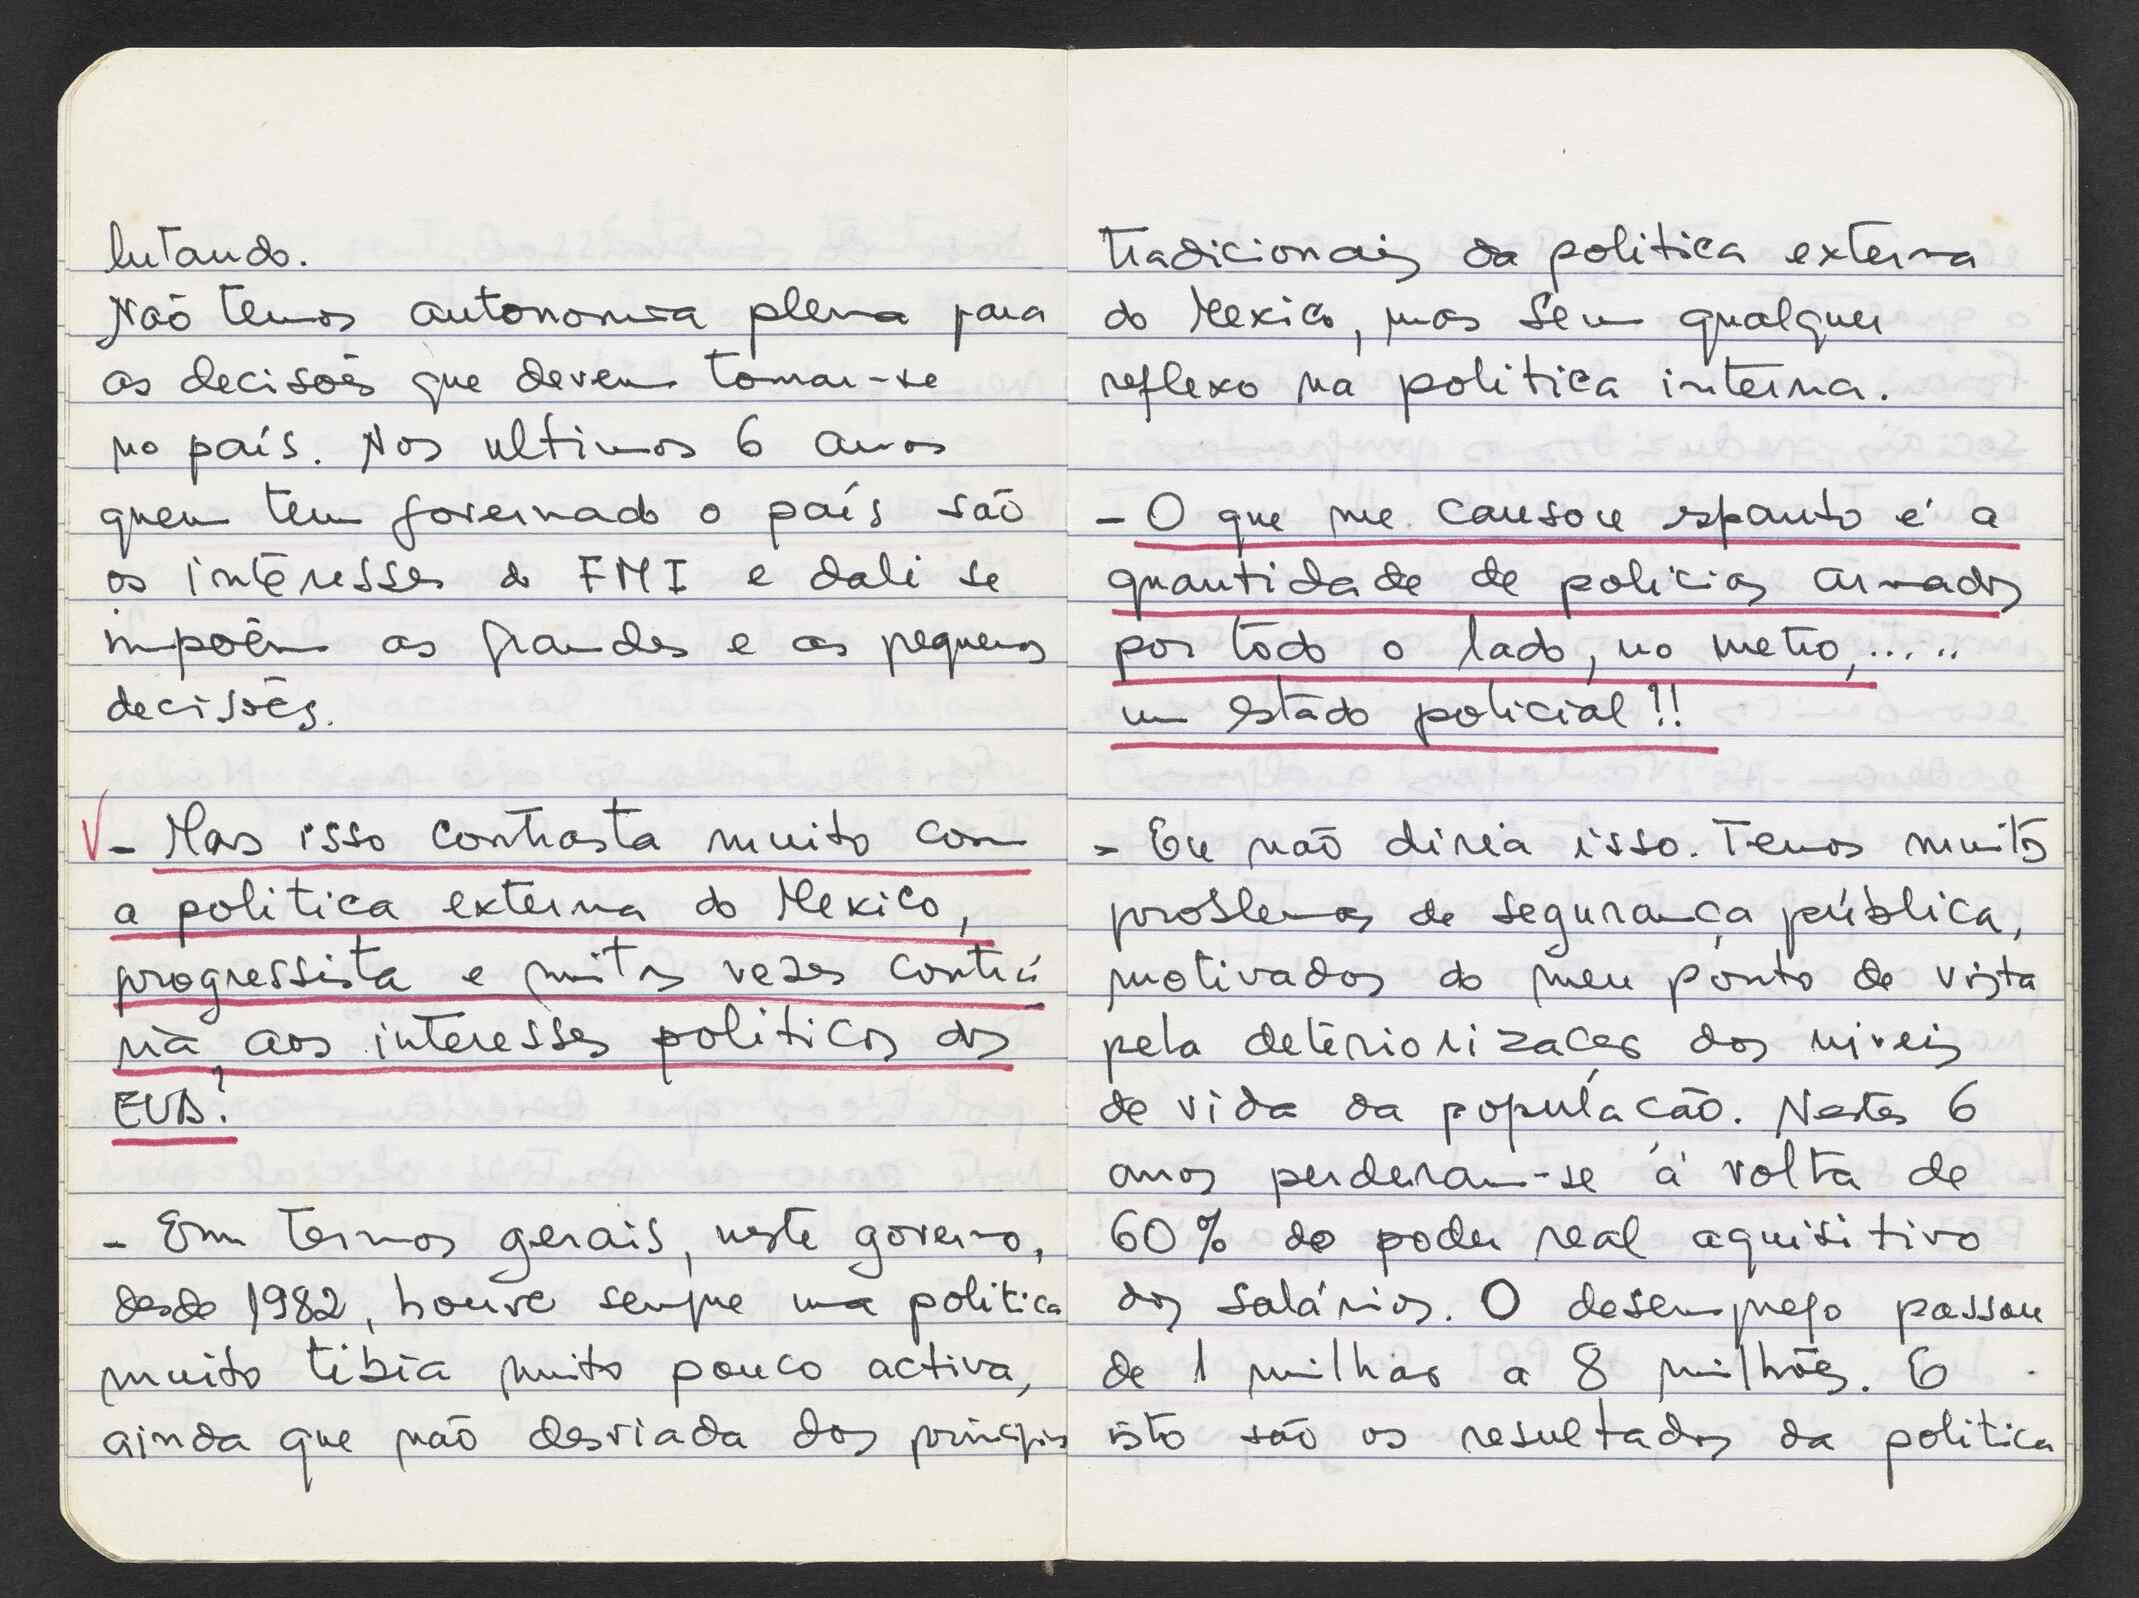 lutando.
Não temos autonomia plena para
as decisões que devem tomar-se
no país. Nos ultimos 6 anos
quem tem governado o país são
os interesses do FMI e dali se
impoêm as grandes e as pequenas
decisões.
- Mas isso contrasta muito com
a politica externa do Mexico,
progressista e muitas vezes contrá
ria aos interesses politicos dos
EUA?
- Em termos gerais, neste governo,
desde 1982, houve sempre uma politica
muito tibia muito pouco activa,
ainda que não desviada dos principios
tradicionais da politica externa
do Mexico, mas sem qualquer
reflexo na politica interna.
- O que me causou espanto é a
quantidade de policias armados
por todo o lado, no metro,.....
um estado policial!!
- Eu não diria isso. Temos muitos
problemas de segurança pública,
motivados do meu ponto de vista
pela deteriorizacao dos niveis
de vida da população. Nestes 6
anos perderam-se á volta de
60% do poder real aquisitivo
dos salários. O desemprego passou
de 1 milhão a 8 milhões. E
isto são os resultados da politica